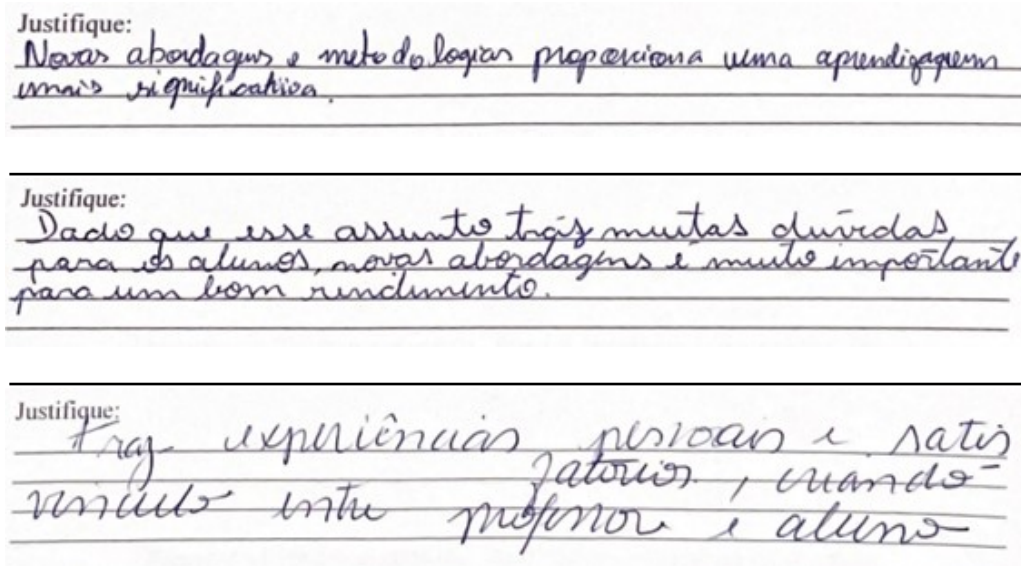 Justifique:
Novas abordagens e metodologias proporciona uma aprendizagem
mais significativa.
Justifique:
Dado que esse assunto trás muitas duvidas
para os alunos, novas abordagens é muito importante
para um bom rendimento.
Justifique:
Traz experiências pessoais e satis
fatórios, criando
vinculo entre professor e aluno